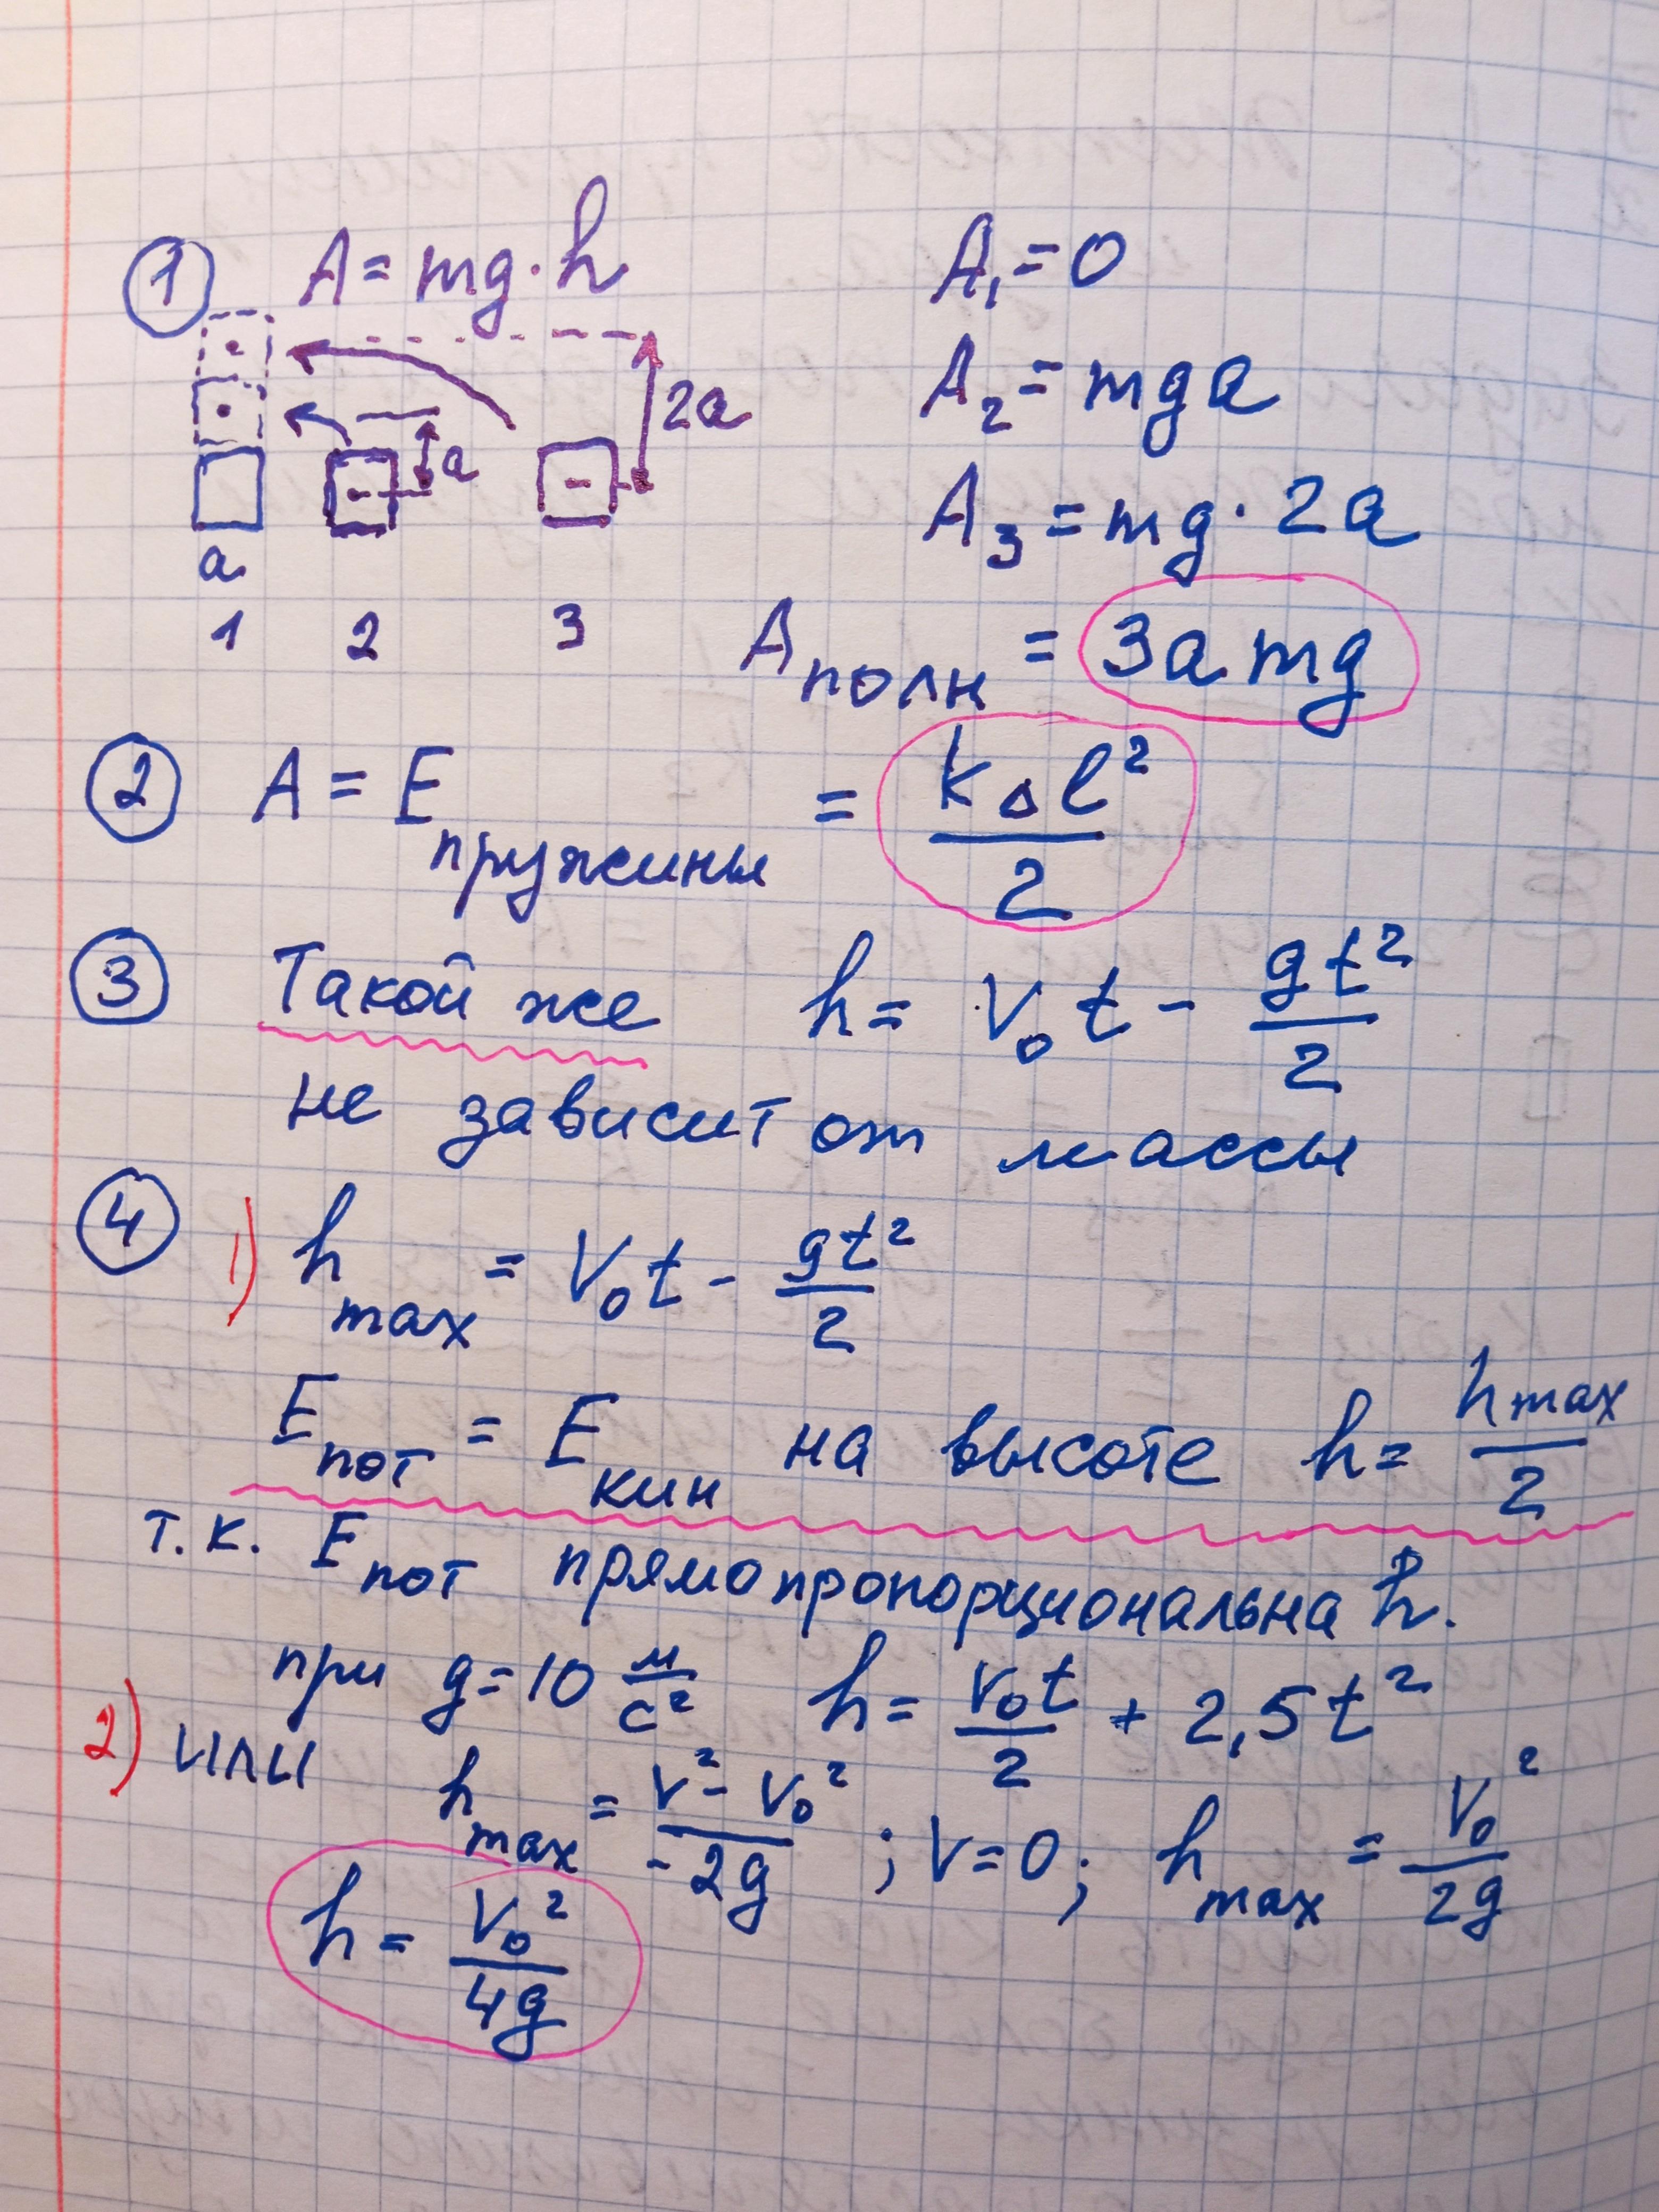 ① A = mg · h
A₁ = 0
2a
A₂ = mga
a
A₃ = mg · 2a
a
1 2 3
Aполн = 3amg
② A = Eпружины = kΔl²/2
③ Такой же h = V₀t - gt²/2
не зависит от массы
④ 1) hmax = V₀t - gt²/2
Eпот = Eкин на высоте h = hmax/2
т.к. Eпот прямо пропорциональна h.
при g = 10 м/с² h = V₀t/2 + 2,5t²
2) или hmax = V² - V₀²/-2g ; V = 0; hmax = V₀²/2g
h = V₀²/4g